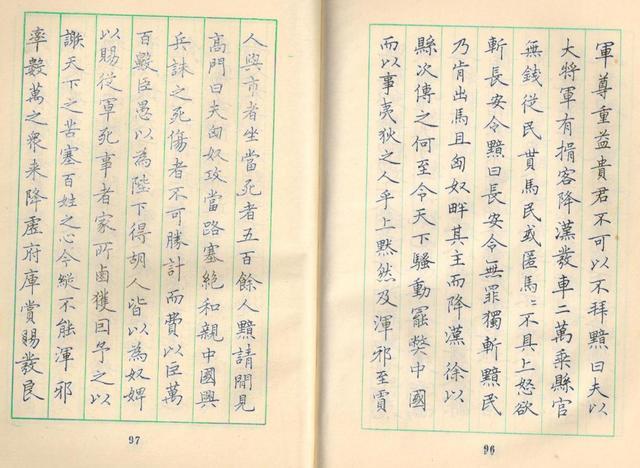 軍尊重益貴君不可以不拜黯曰夫以
大將軍有揖客降漢發車二萬乘縣官
無錢從民貰馬民或匿馬=不具上怒欲
斬長安令黯曰長安令無罪獨斬黯民
乃肯出馬且匈奴畔其主而降漢徐以
縣次傳之何至令天下騷動罷獘中國
而以事夷狄之人乎上黙然及渾邪至賈
96
人與市者坐當死者五百餘人黯請閒見
高門曰夫匈奴攻當路塞絕和親中國興
兵誅之死傷者不可勝計而費以巨萬
百數臣愚以為陛下得胡人皆以為奴婢
以賜從軍死事者家所鹵獲因予之以
謝天下之苦塞百姓之心今縱不能渾邪
率數萬之衆来降虛府庫賞賜發良
97